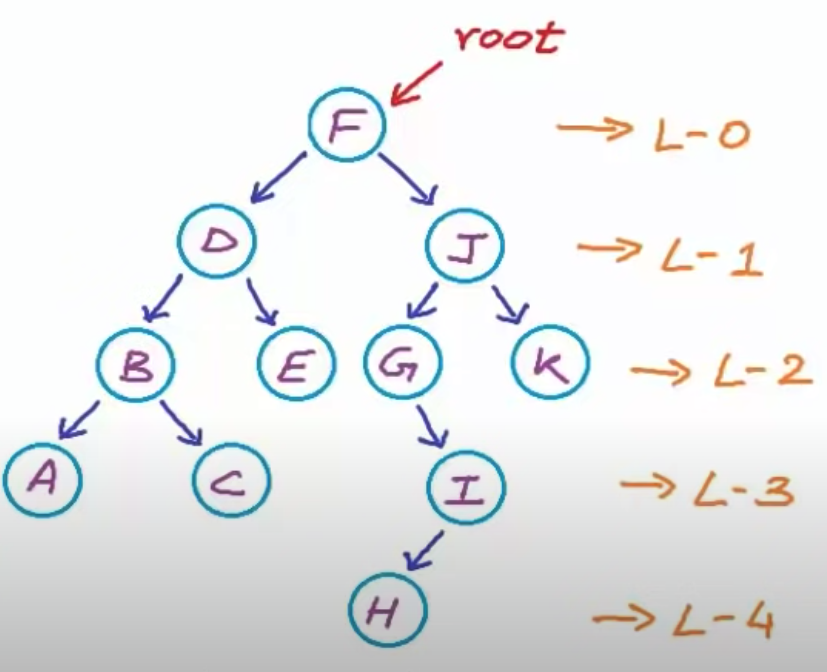 root
F → L-0
D J → L-1
B E G K → L-2
A C I → L-3
H → L-4